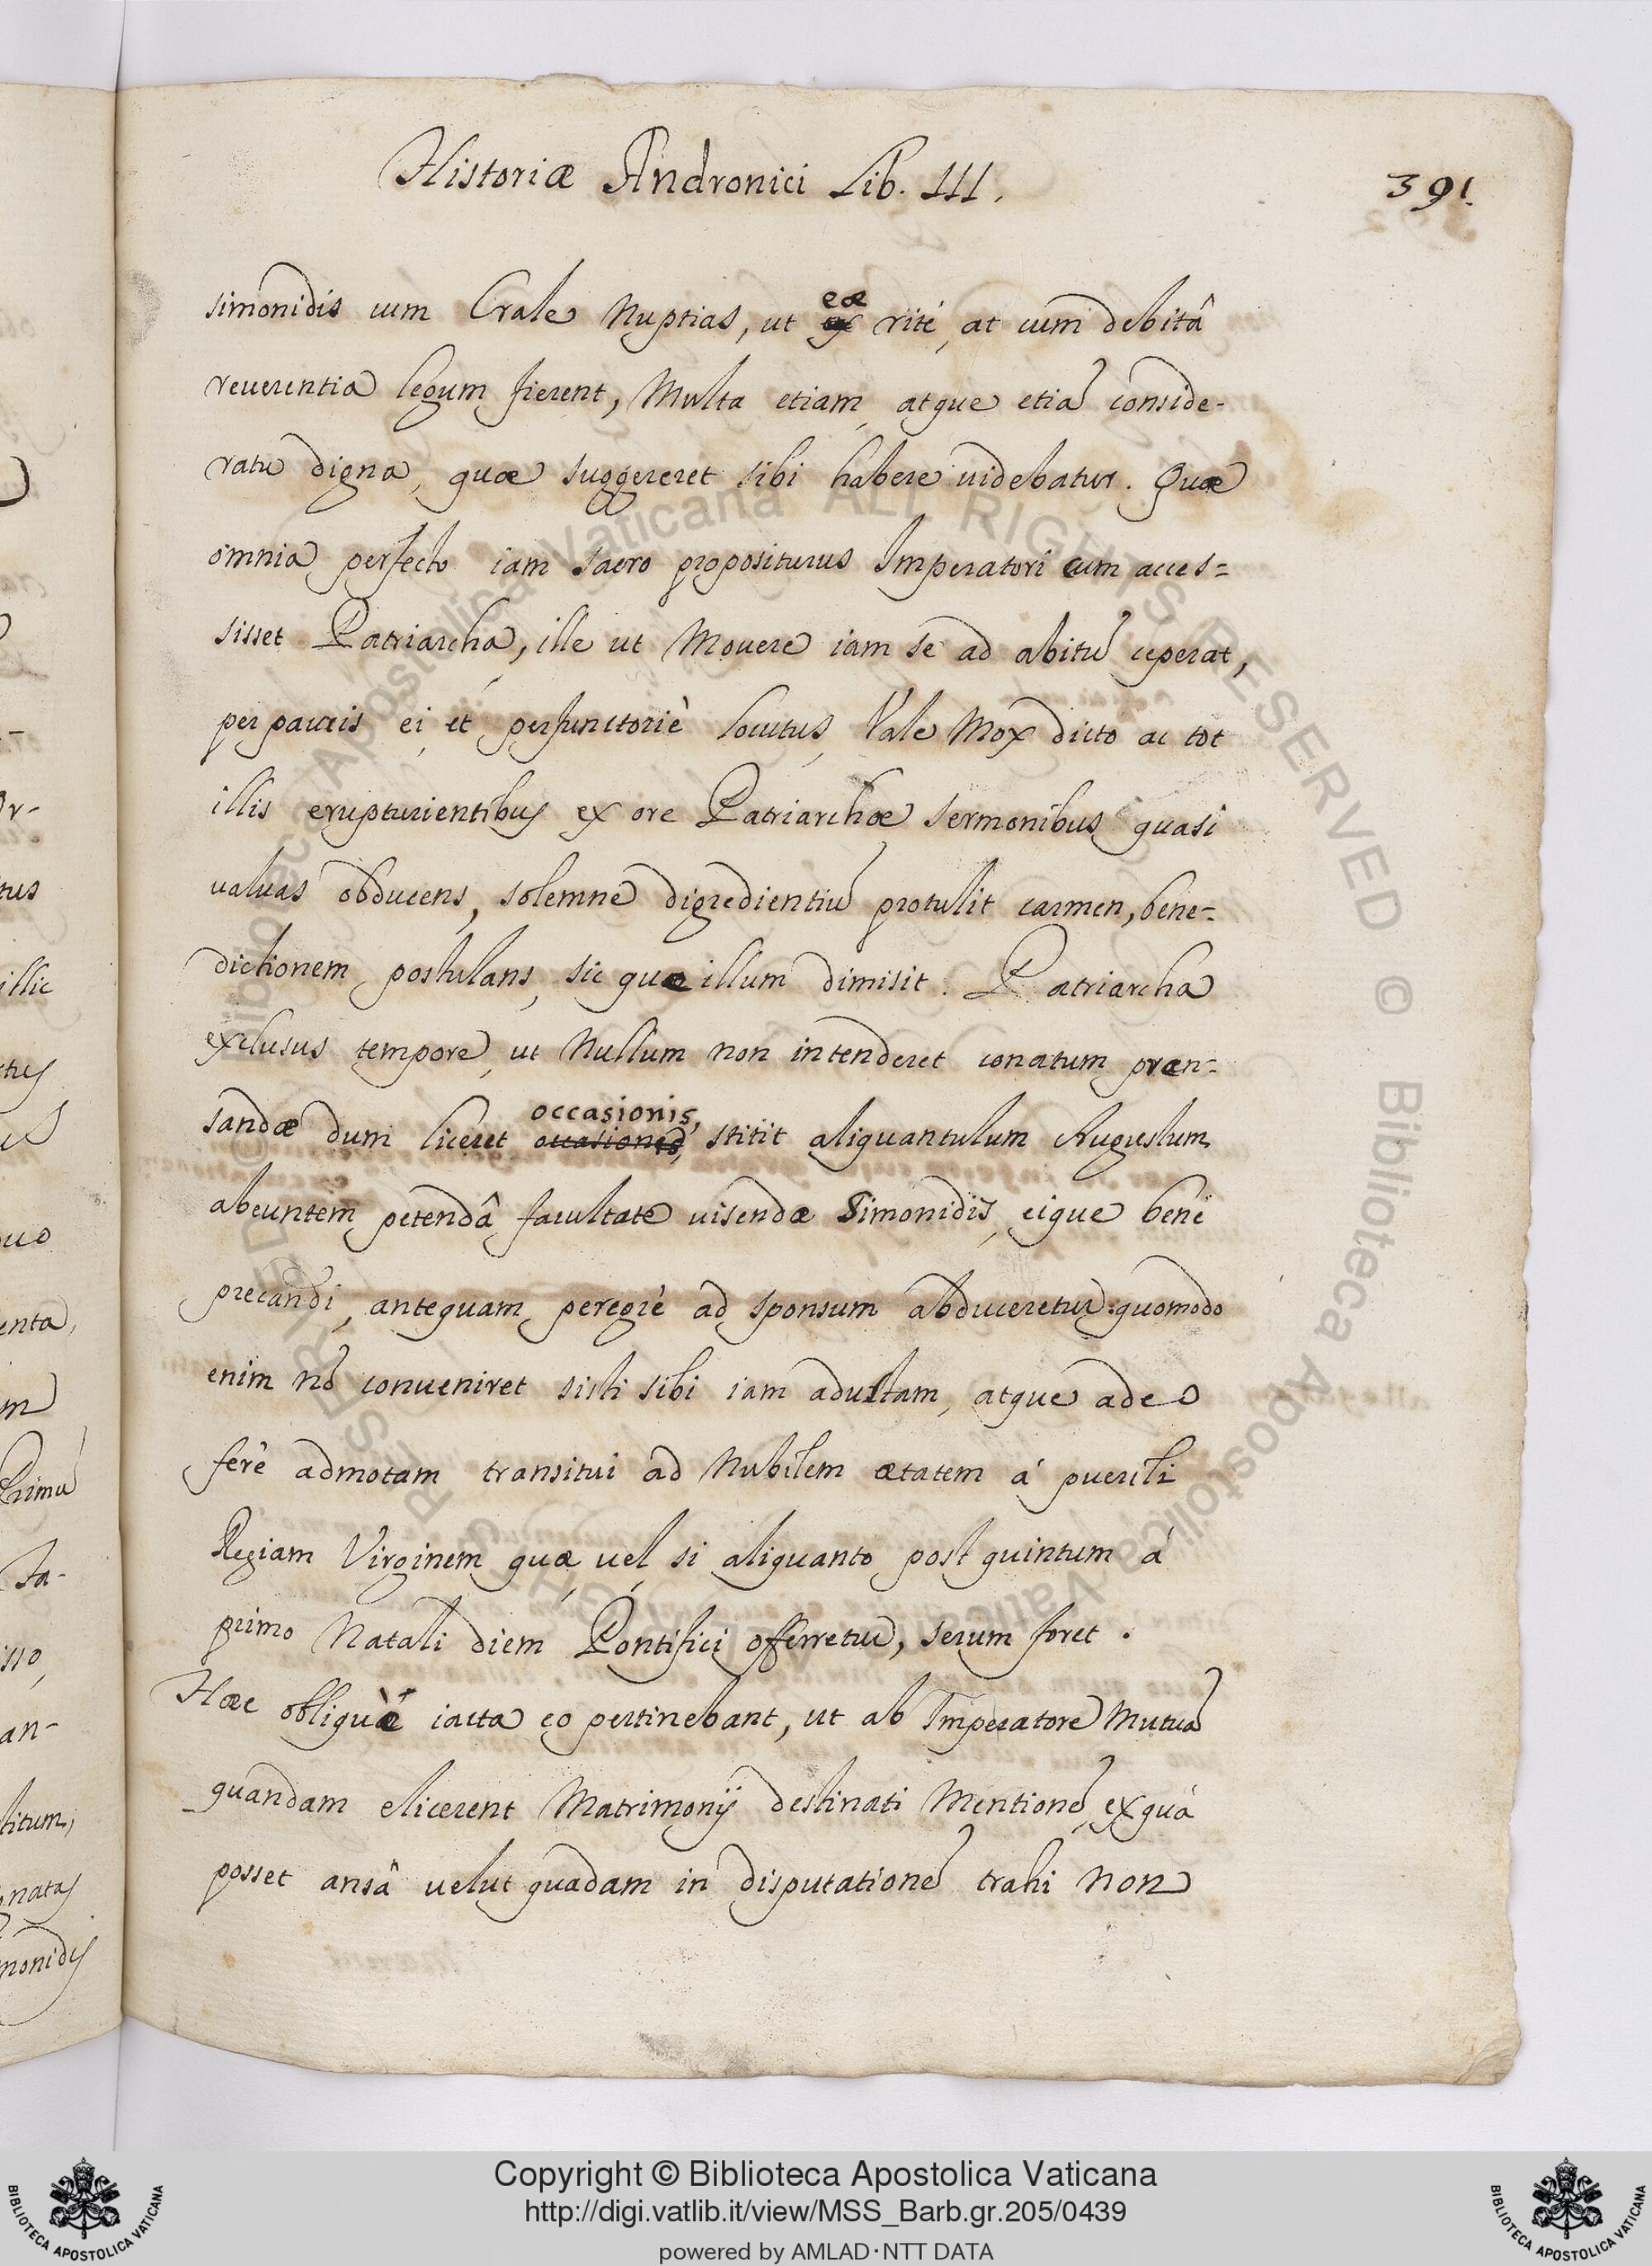 Historiæ Andronici Lib. III.
391.
simonidis cum Crale Nuptias, ut eæ rité, at cum debitâ
reuerentia legum fierent, Multa etiam, atque etiā conside-
ratu digna, quæ suggereret sibi habere uidebatur. Quæ
omnia perfecto iam sacro propositurus Imperatori cum acces=
sisset Patriarcha, ille ut Mouere iam se ad abitū ceperat,
per paucis ei, et perfunctoriè locutus, Vale Mox dicto ac tot
illis erupturientibus ex ore Patriarchæ sermonibus quasi
valuas obducens, solemne digredientiū protulit carmen, bene=
dictionem postulans, sic quæ illum dimisit. Patriarcha
exclusus tempore, ut Nullum non intenderet conatum præn=
sandæ dum liceret occasionis, stitit aliquantulum Augustum
abeuntem petendâ facultate uisendæ Simonidis, eique benè
precandi, antequam peregrè ad sponsum abduceretur: quomodo
enim nō conueniret sisti sibi iam adultam, atque adeo
ferè admotam transitui ad Nubilem ætatem á puerili
Regiam Virginem quæ, uel si aliquanto post quintum á
primo Natali diem Pontifici offerretur, serum foret.
Hæc obliquè iacta eo pertinebant, ut ab Imperatore Mutuā
quandam elicerent Matrimonij destinati Mentionē, ex quá
posset ansâ velut quadam in disputationē trahi non
Copyright © Biblioteca Apostolica Vaticana
http://digi.vatlib.it/view/MSS_Barb.gr.205/0439
powered by AMLAD·NTT DATA
BIBLIOTECA APOSTOLICA VATICANA
BIBLIOTECA APOSTOLICA VATICANA